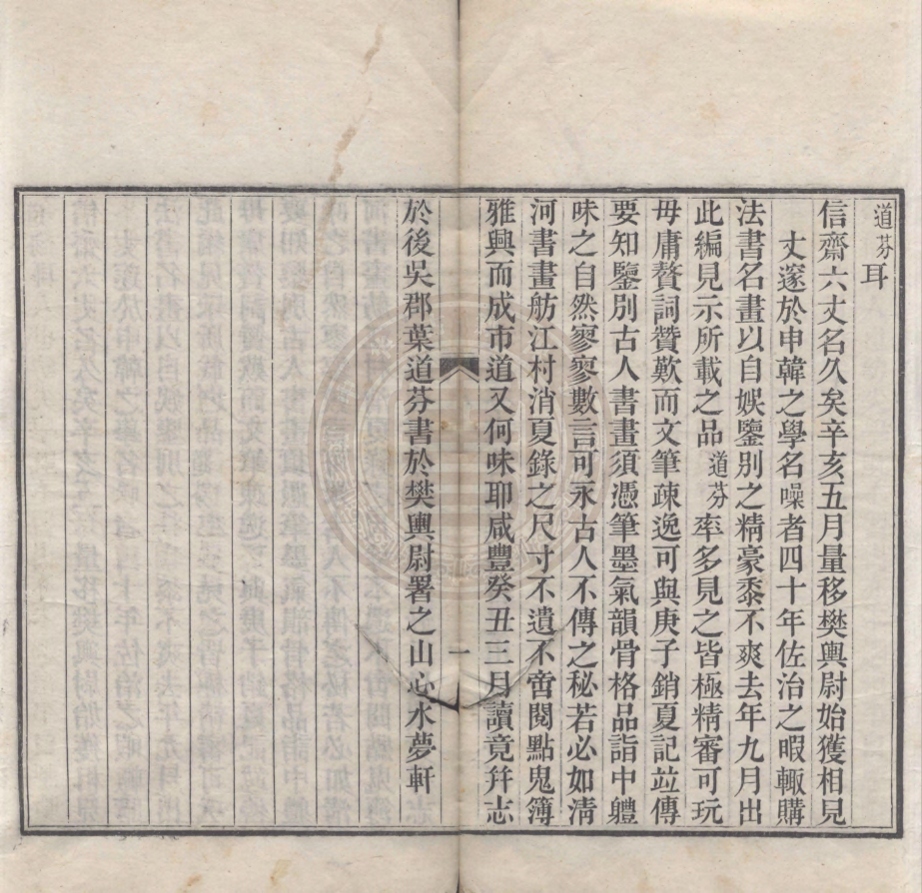 道芬耳
信齋六丈名久矣辛亥五月量移樊輿尉始獲相見
丈邃於申韓之學名噪者四十年佐治之暇輙購
法書名畫以自娛鑒別之精豪黍不爽去年九月出
此編見示所載之品道芬率多見之皆極精審可玩
毋庸贅詞贊歎而文筆疎逸可與庚子銷夏記竝傳
要知鑒別古人書畫須憑筆墨氣韻骨格品詣中軆
味之自然寥寥數言可永古人不傳之秘若必如淸
河書畫舫江村消夏錄之尺寸不遺不啻閱點鬼簿
雅興而成市道又何味耶咸豐癸丑三月讀竟幷志
一
於後吳郡葉道芬書於樊輿尉署之山心水夢軒